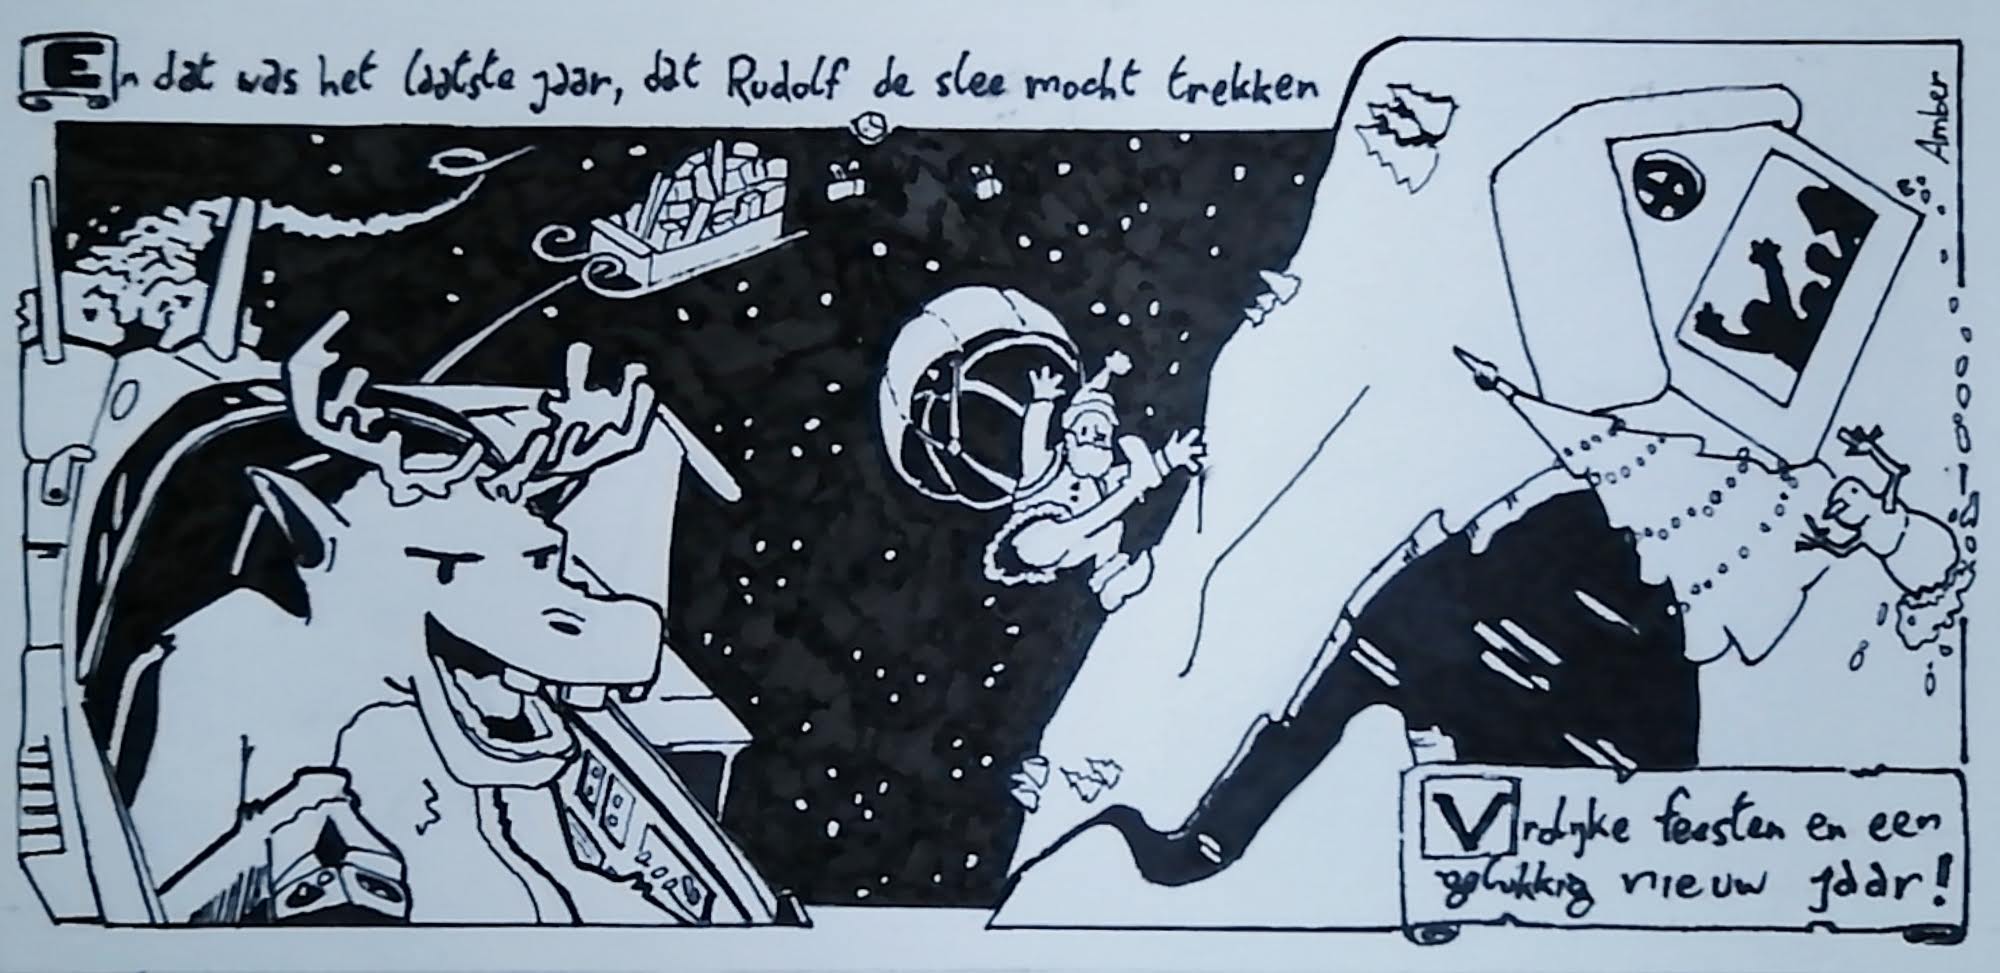 En dat was het laatste jaar, dat Rudolf de slee mocht trekken
Amber
Vrolijke feesten en een
gelukkig nieuw jaar!